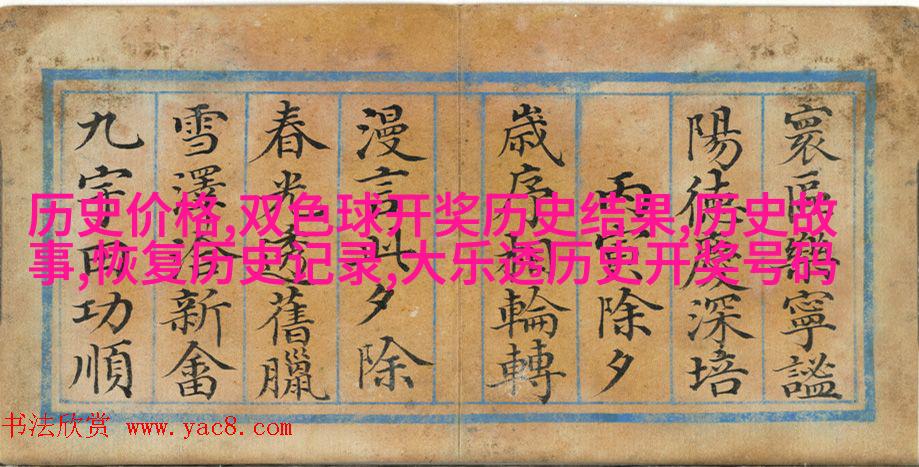 寰區樂寧謐
陽德慶深培
丙寅除夕
歲序調輪轉
漫言夕除
春光透舊臘
雪澤洽新畬
九功順
历史价格,双色球开奖历史结果,历史故
事,恢复历史记录,大乐透历史开奖号码
书法欣赏 www.yac8.com